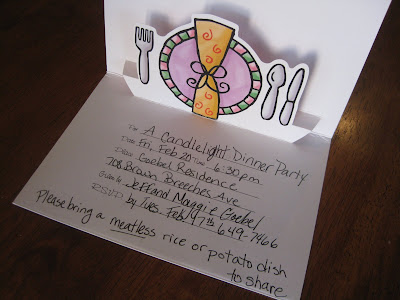 For: A Candlelight Dinner Party
Date: Fri, Feb 20th 6:30pm
Place: Goebel Residence
708 Brown Breeches Ave
Given by Jeff and Maggie Goebel
RSVP by Tues. Feb. 17th 649-7466
Please bring a meatless rice or potato dish
to share